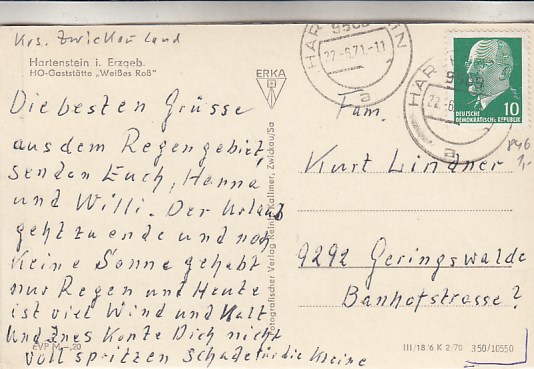 Krs. Zwickau Land
Hartenstein i. Erzgeb.
HO-Gaststätte „Weißes Roß"
Die besten Grüsse
aus dem Regengebiet,
senden Euch, Hanna
und Willi. Der Urlaub
geht zu ende und noch
Keine Sonne gehabt
nur Regen und Heute
ist viel Wind und Kalt
und Ines Konte Dich nicht
voll spritzen schade für die Kleine
EVP M -,20
ERKA
Fotografischer Verlag Reinh. Kallmer, Zwickau/Sa
HARTENSTEIN
22.-6.71.-11
a
HAR
22.-6
a
10
DEUTSCHE
DEMOKRATISCHE REPUBLIK
846
1,-
Fam.
Kurt Lindner
9292 Geringswalde
Banhofstrasse 7
III/18/6 K 2/70 350/10550